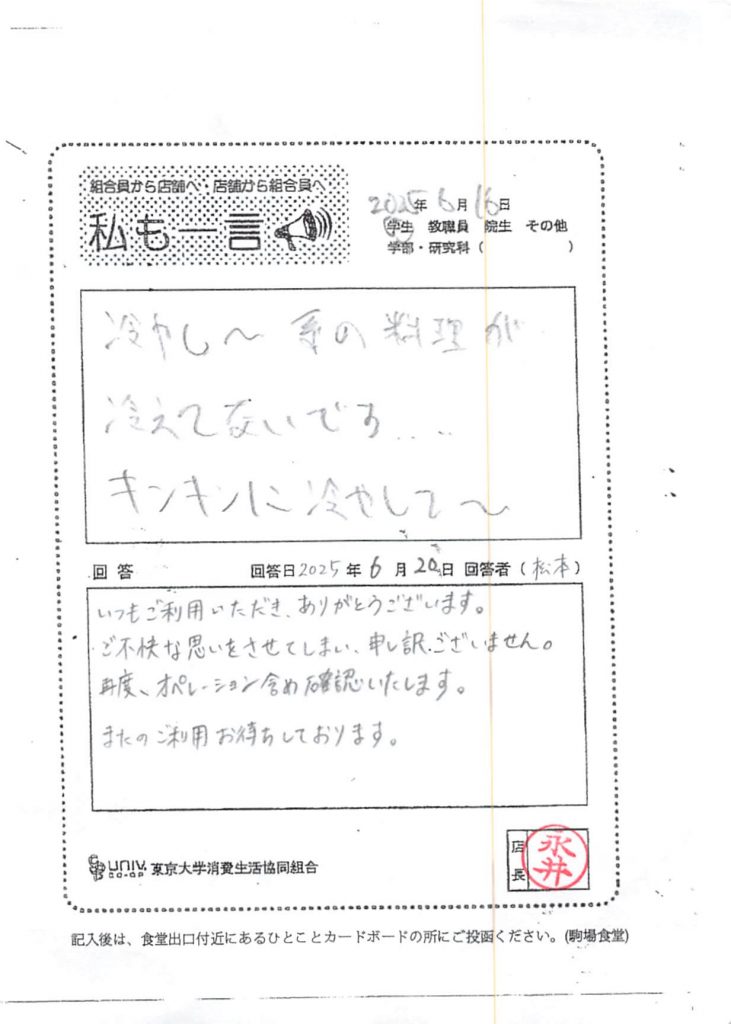 組合員から店舗へ・店舗から組合員へ
私も一言
2025年6月16日
学生 教職員 院生 その他
学部・研究科( )
冷やし〜系の料理が
冷えてないです....
キンキンに冷やして〜
回答 回答日2025年6月20日 回答者(松本)
いつもご利用いただき、ありがとうございます。
ご不快な思いをさせてしまい、申し訳ございません。
再度、オペレーション含め確認いたします。
またのご利用お待ちしております。
UNIV. CO-OP 東京大学消費生活協同組合
店長 永井
記入後は、食堂出口付近にあるひとことカードボードの所にご投函ください。(駒場食堂)